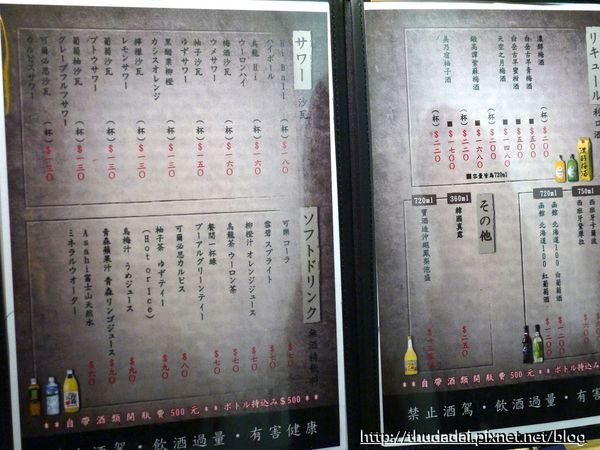 サワー 沙瓦
Hi Ball
ハイボール (杯) $180
烏龍 Hi
ウーロンハイ (杯) $160
梅酒沙瓦
ウメサワー (杯) $150
柚子沙瓦
ゆずサワー (杯) $150
黑醋栗柳橙
カシスオレンジ (杯) $150
檸檬沙瓦
レモンサワー (杯) $130
葡萄沙瓦
ブトウサワー (杯) $130
葡萄柚沙瓦
グレープフルフサワー (杯) $130
可爾必思沙瓦
カルピスサワー (杯) $130
ソフトドリンク 無酒精飲料
可樂 コーラ $70
雪碧 スプライト $70
柳橙汁 オレンジジュース $70
烏龍茶 ウーロン茶 $70
餐間一杯綠
プーアルグリーンティー $70
可爾必思カルピス $80
柚子茶 ゆずティー
(Hot or Ice) $90
烏梅汁 うめジュース $90
青森蘋果汁 青森リンゴジュース $90
Asahi富士山天然水
ミネラルウオーター $60
**自帶酒類開瓶費500元** ボトル持込み$500**
禁止酒駕・飲酒過量・有害健康
リキュール 利口酒
濃醇梅酒 (杯) $200
白岳古早青梅酒 $500
白岳古早蜜柑酒 $500
天空之月梅酒 $1480
(杯) $200
鍛高譚紫蘇梅酒 $1680
(杯) $220
美乃窪柚子酒 $1700
(杯) $220
■容量皆為720ml
その他
750ml
西班牙卡爾波
西班牙黛摩拉
720ml
函館 北海道100 白葡萄酒 $1200
函館 北海道100 紅葡萄酒 $1200
360ml
韓國真露 $250
720ml
寶酒造沖繩鳳梨泡盛
**自帶酒類開瓶費500元** ボトル持込み
禁止酒駕・飲酒過量・有害
http://thudadai.pixnet.net/blog